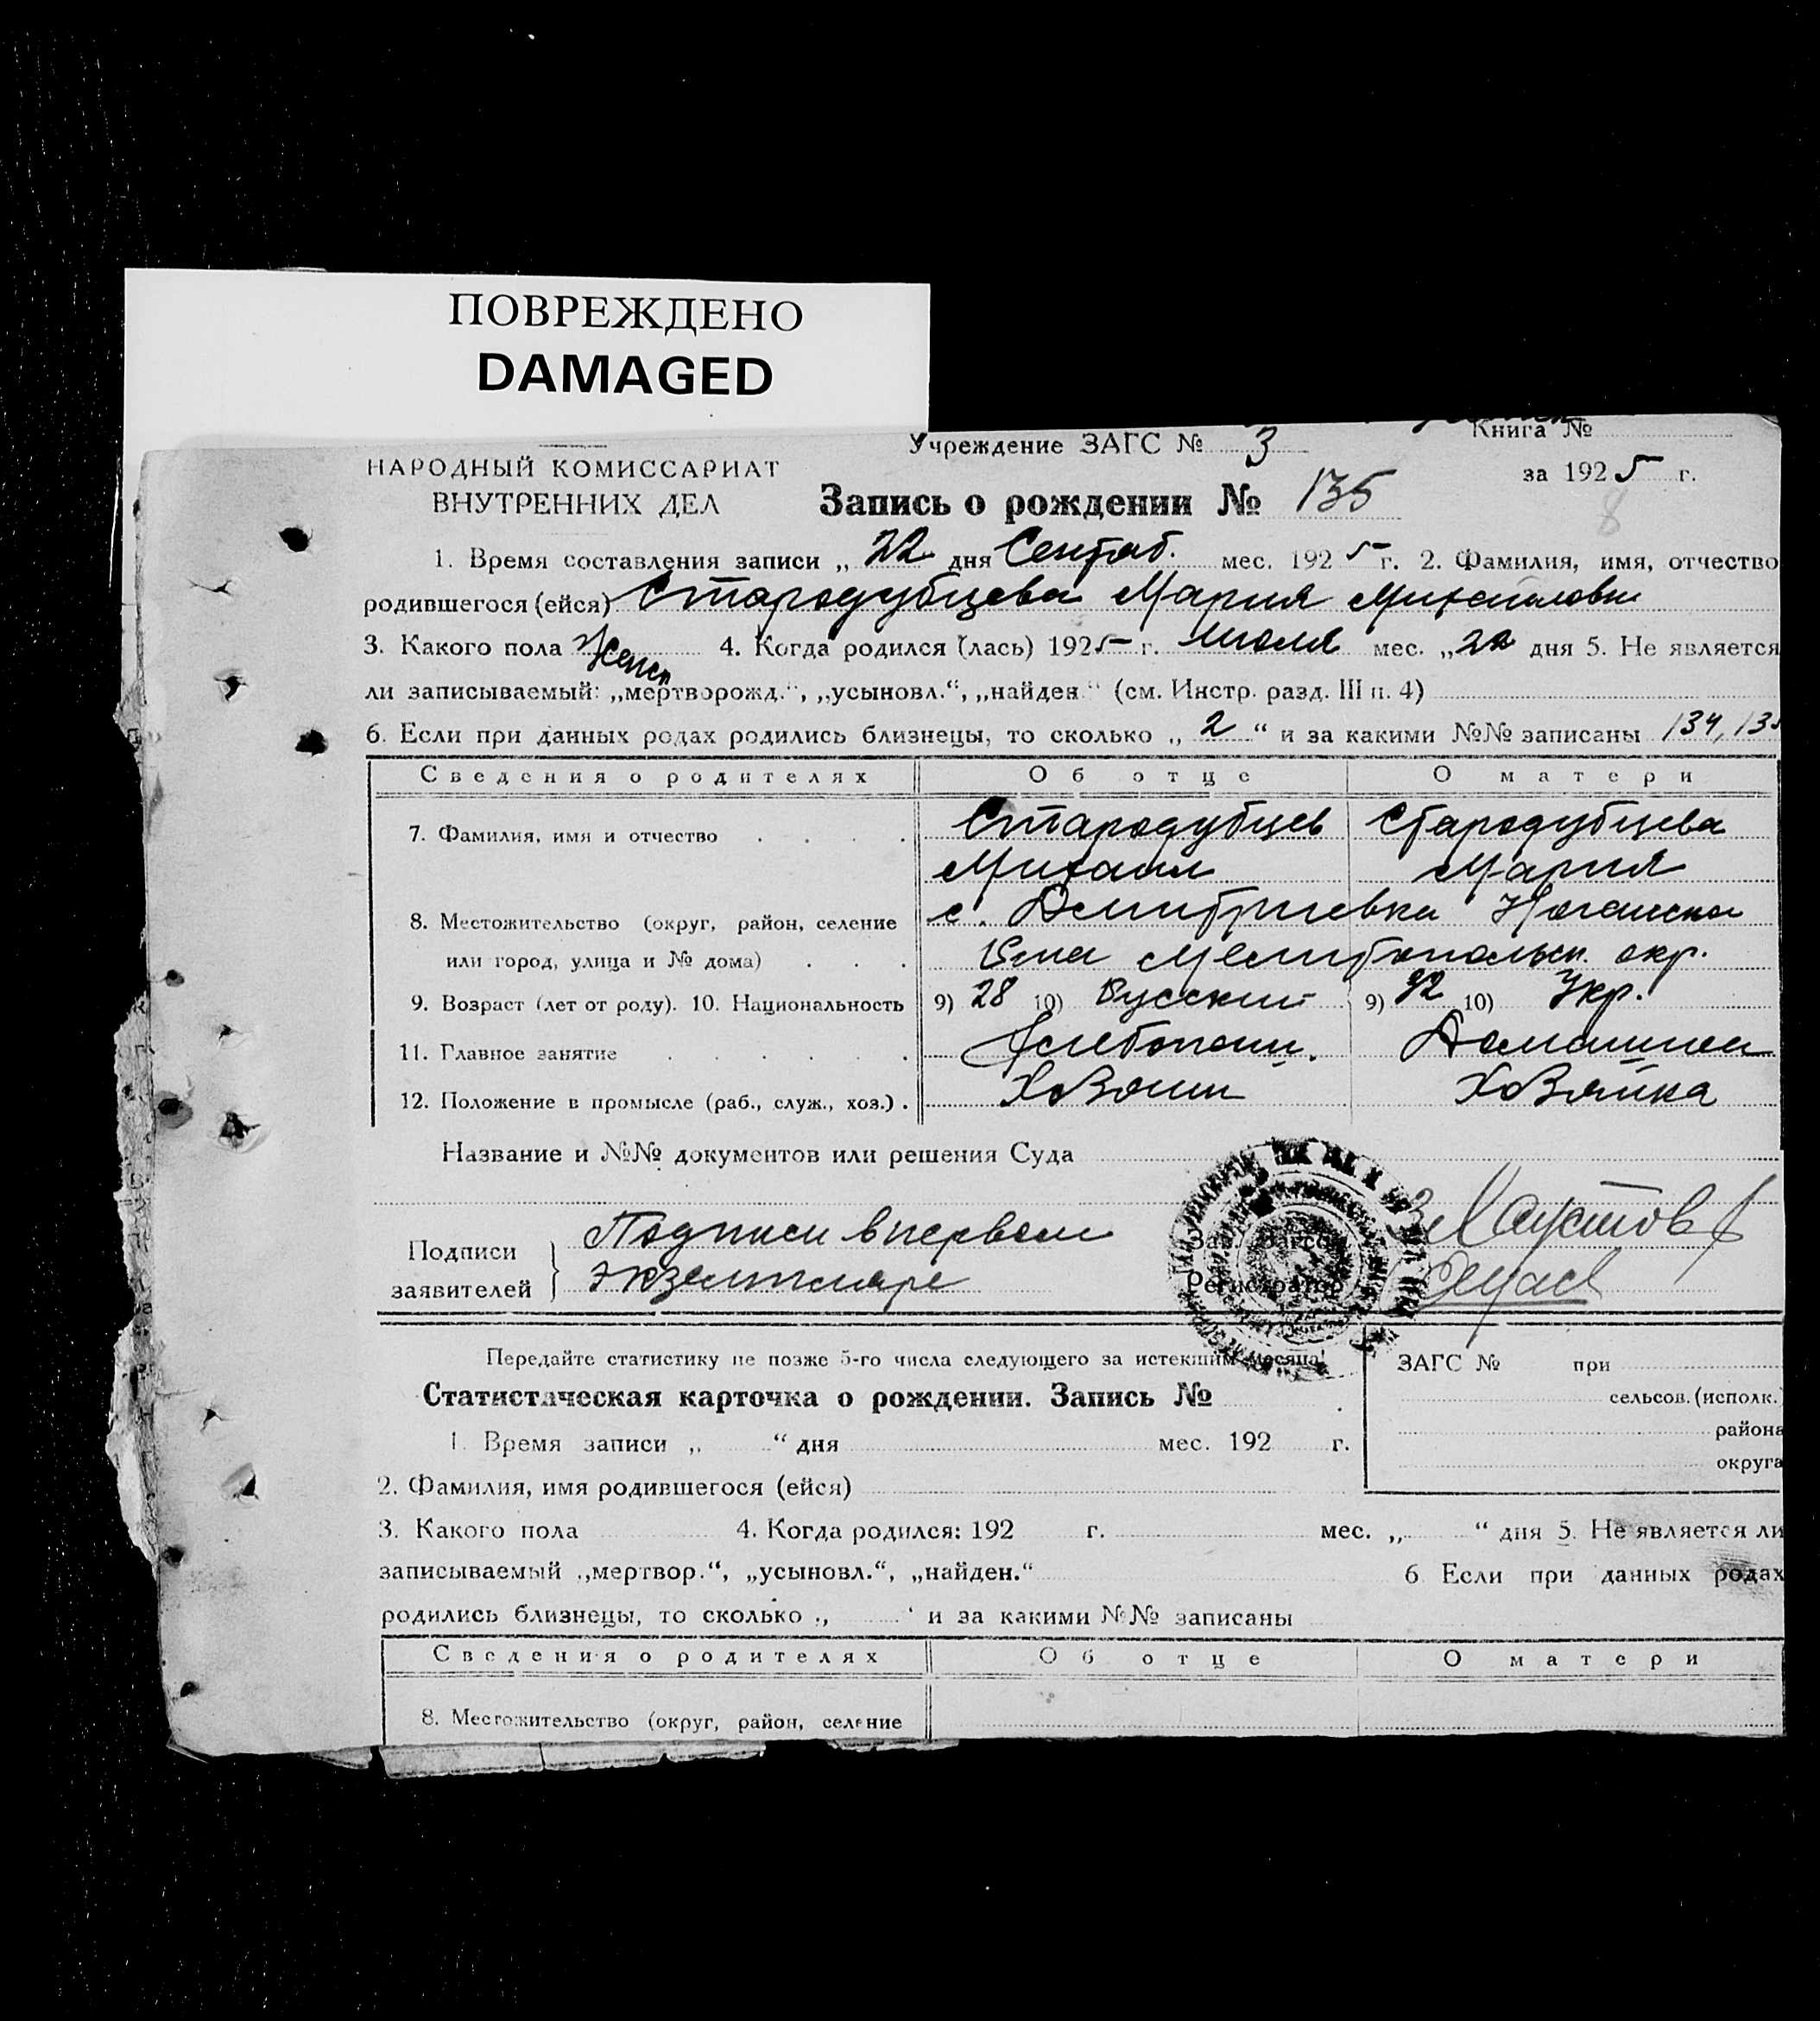 ПОВРЕЖДЕНО
DAMAGED
Учреждение ЗАГС № 3
Книга №
НАРОДНЫЙ КОМИССАРИАТ
ВНУТРЕННИХ ДЕЛ
за 1925 г.
Запись о рождении № 135
8
1. Время составления записи „ 22 дня Сентяб. мес. 1925 г. 2. Фамилия, имя, отчество
родившегося (ейся) Стародубцева Мария Михайловн
3. Какого пола Женск 4. Когда родился (лась) 1925 г. Июля мес. „22 дня 5. Не является
ли записываемый: „мертворожд.“, „усыновл.“, „найден.“ (см. Инстр. разд. III п. 4)
6. Если при данных родах родились близнецы, то сколько „ 2 “ и за какими №№ записаны 134, 135
Сведения о родителях Об отце О матери
7. Фамилия, имя и отчество Стародубцев Стародубцева
Михаил Мария
8. Местожительство (округ, район, селение с. Дмитриевка Ногайска
или город, улица и № дома) Мелитопольск. окр.
9. Возраст (лет от роду). 10. Национальность 9) 28 10) Русский 9) 10) Укр.
11. Главное занятие Хлебопаш. Домашняя
12. Положение в промысле (раб., служ., хоз.) Хозяин Хозяйка
Название и №№ документов или решения Суда
Подписи заявителей } Подписи в первом
экземпляре
Зав. Загсом
Регистратор
Передайте статистику не позже 5-го числа следующего за истекшим месяца!
ЗАГС № при
Статистическая карточка о рождении. Запись №
сельсов. (исполк.)
района
1. Время записи „ “ дня мес. 192 г.
округа
2. Фамилия, имя родившегося (ейся)
3. Какого пола 4. Когда родился: 192 г. мес. „ “ дня 5. Не является ли
записываемый „мертвор.“, „усыновл.“, „найден.“ 6. Если при данных родах
родились близнецы, то сколько „ “ и за какими №№ записаны
Сведения о родителях Об отце О матери
8. Местожительство (округ, район, селение